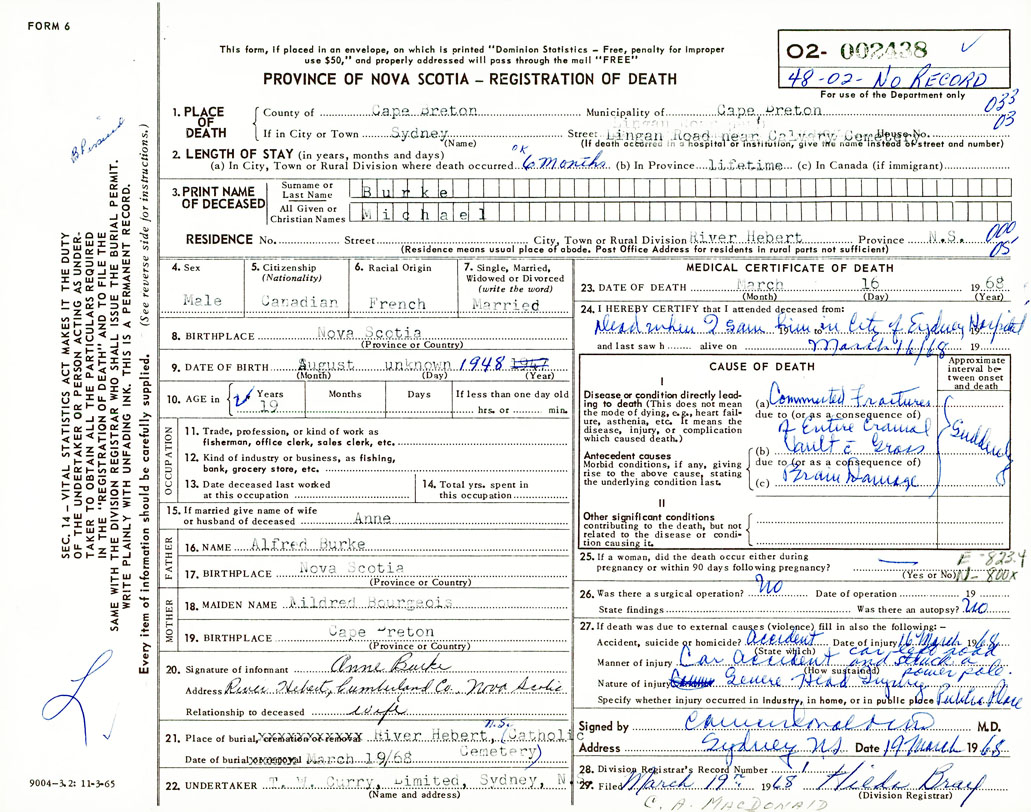 FORM 6
This form, if placed in an envelope, on which is printed "Dominion Statistics – Free, penalty for improper
use $50," and properly addressed will pass through the mail "FREE"
PROVINCE OF NOVA SCOTIA – REGISTRATION OF DEATH
02- 002438
48-02- No RECORD
For use of the Department only
033
03
1. PLACE OF DEATH
County of Cape Breton Municipality of Cape Breton
If in City or Town Sydney Street Lingan Road near Calvary Cemetery House No.
(Name) (If death occurred in a hospital or institution, give the name instead of street and number)
2. LENGTH OF STAY (in years, months and days)
(a) In City, Town or Rural Division where death occurred OK 6 months (b) In Province lifetime (c) In Canada (if immigrant)
3. PRINT NAME OF DECEASED
Surname or Last Name Burke
All Given or Christian Names Michael
RESIDENCE No. Street City, Town or Rural Division River Hebert Province N.S.
(Residence means usual place of abode. Post Office Address for residents in rural parts not sufficient)
000
05
4. Sex
Male
5. Citizenship (Nationality)
Canadian
6. Racial Origin
French
7. Single, Married, Widowed or Divorced (write the word)
Married
8. BIRTHPLACE Nova Scotia
(Province or Country)
9. DATE OF BIRTH August unknown 1948 1947
(Month) (Day) (Year)
10. AGE in Years Months Days If less than one day old
19 hrs. or min.
OCCUPATION
11. Trade, profession, or kind of work as
fisherman, office clerk, sales clerk, etc.
12. Kind of industry or business, as fishing,
bank, grocery store, etc.
13. Date deceased last worked
at this occupation
14. Total yrs. spent in
this occupation
15. If married give name of wife
or husband of deceased Anne
FATHER
16. NAME Alfred Burke
17. BIRTHPLACE Nova Scotia
(Province or Country)
MOTHER
18. MAIDEN NAME Mildred Bourgeois
19. BIRTHPLACE Cape Breton
(Province or Country)
20. Signature of informant Anne Burke
Address River Hebert, Cumberland Co. Nova Scotia
Relationship to deceased wife
21. Place of burial, cremation or removal River Hebert, N.S. (Catholic
Cemetery)
Date of burial or removal March 19/68
22. UNDERTAKER T. W. Curry, Limited, Sydney, N.S.
(Name and address)
MEDICAL CERTIFICATE OF DEATH
23. DATE OF DEATH March 16 1968
(Month) (Day) (Year)
24. I HEREBY CERTIFY that I attended deceased from:
Dead when I saw him in City of Sydney Hospital 19
and last saw h alive on March 16/68 19
CAUSE OF DEATH
Approximate interval between onset and death
I
Disease or condition directly leading to death (This does not mean the mode of dying, e.g., heart failure, asthenia, etc. It means the disease, injury, or complication which caused death.)
(a) Comminuted Fractures
due to (or as a consequence of)
of Entire Cranial
Antecedent causes
Morbid conditions, if any, giving rise to the above cause, stating the underlying condition last.
(b) Vault c̄ Gross
due to (or as a consequence of)
(c) Brain Damage
Suddenly
II
Other significant conditions
contributing to the death, but not related to the disease or condition causing it.
25. If a woman, did the death occur either during
pregnancy or within 90 days following pregnancy?
(Yes or No)
E -823.4
N- 800X
26. Was there a surgical operation? No Date of operation 19
State findings Was there an autopsy? No
27. If death was due to external causes (violence) fill in also the following:–
Accident, suicide or homicide? Accident Date of injury 16 March 1968
(State which) car left road
Manner of injury Car accident and struck a
(How sustained) power pole.
Nature of injury Severe Head Injury
Specify whether injury occurred in Industry, in home, or in public place Public Place
Signed by M.D.
Address Sydney NS Date 19 March 1968
28. Division Registrar's Record Number
29. Filed March 19th 1968 Hilda Bray
(Division Registrar)
C. A. MACDONALD
SEC. 14 – VITAL STATISTICS ACT MAKES IT THE DUTY
OF THE UNDERTAKER OR PERSON ACTING AS UNDER-
TAKER TO OBTAIN ALL THE PARTICULARS REQUIRED
IN THE "REGISTRATION OF DEATH" AND TO FILE THE
SAME WITH THE DIVISION REGISTRAR WHO SHALL ISSUE THE BURIAL PERMIT.
WRITE PLAINLY WITH UNFADING INK. THIS IS A PERMANENT RECORD.
Every item of information should be carefully supplied. (See reverse side for instructions.)
9004–3.2: 11-3-65